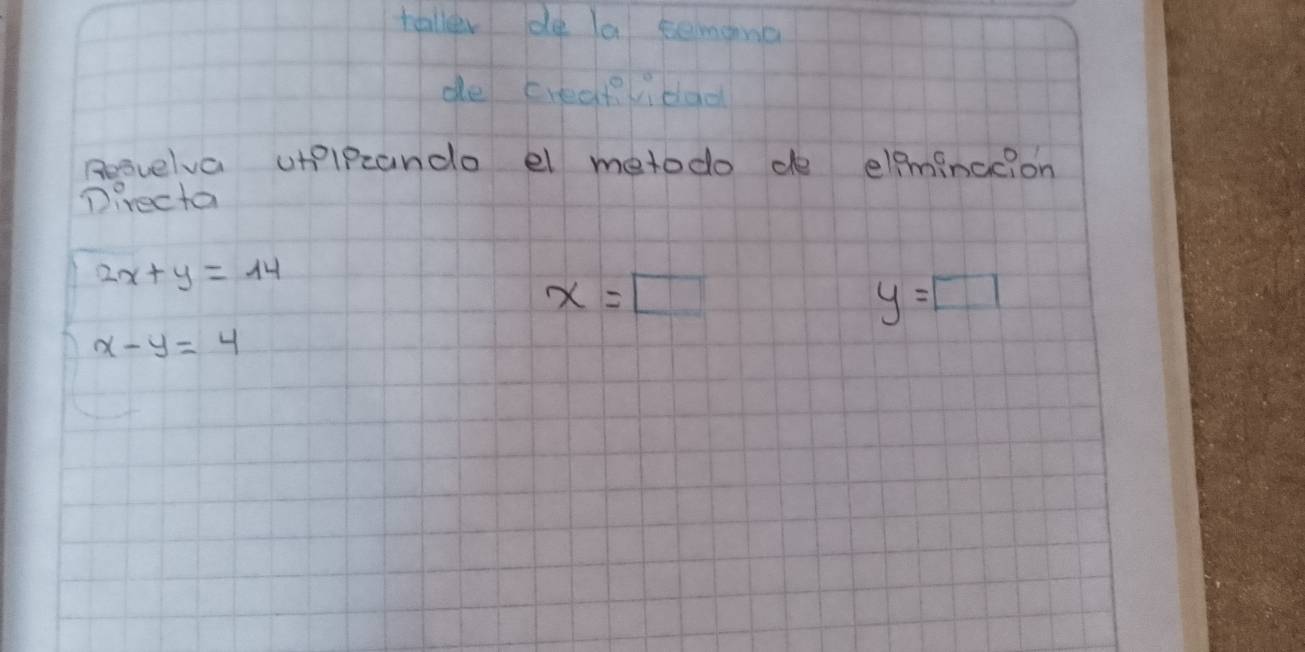 taller de la semana
de creatividad
Resuelva utilizando el metodo de eliminación
Directa
2x+y = 14
x = y =
x-y = 4